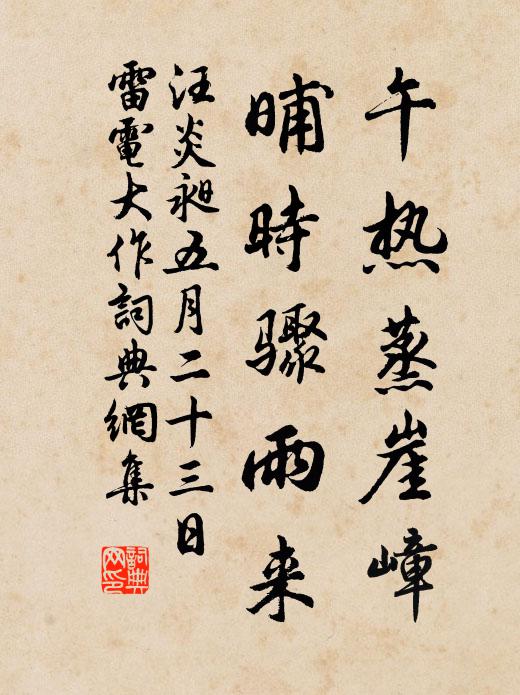 午热蒸崖嶂
晡時骤雨来
汪炎昶五月二十三日
雷電大作詞典網集
詞典網印